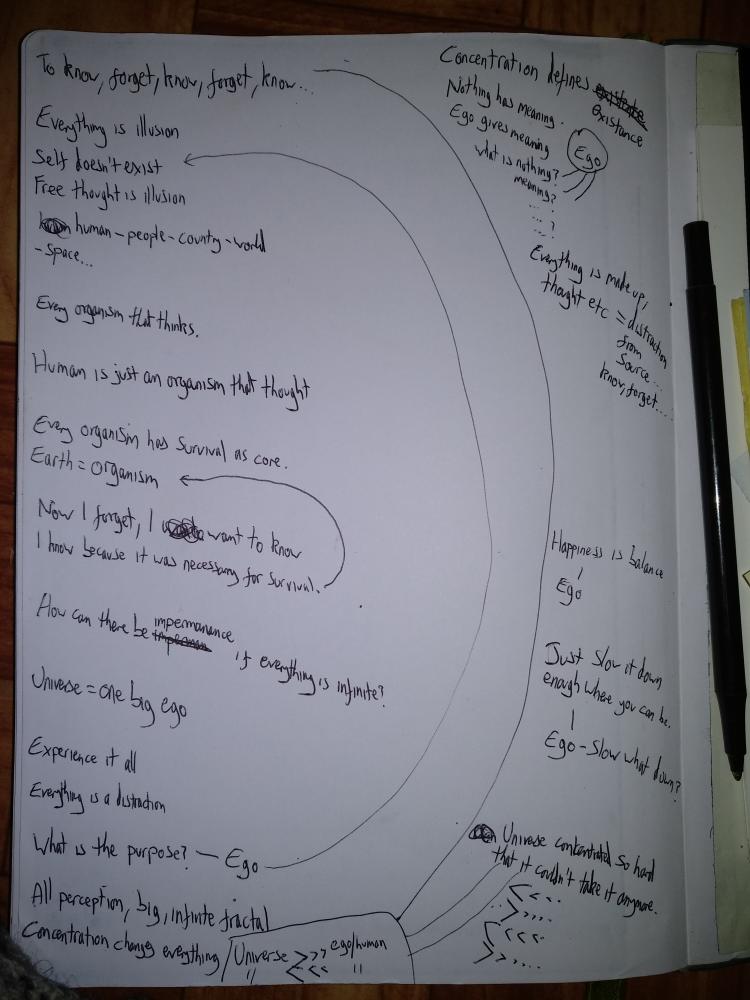 To know, forget, know, forget, know...
Everything is illusion
Self doesn't exist
Free thought is illusion
human - people - country - world
- Space...
Every organism that thinks.
Human is just an organism that thought
Every organism has survival as core.
Earth = organism
Now I forget, I want to know
I know because it was necessary for survival.
How can there be impermanance
if everything is infinite?
Universe = one big ego
Experience it all
Everything is a distraction
What is the purpose? - Ego
All perception, big, infinite fractal
Concentration changes everything
Universe >>> ego/human
" <<< "
Concentration defines
existance
Nothing has meaning.
Ego gives meaning
Ego
what is nothing?
meaning?
.... ?
....
Everything is made up,
thought etc = distraction
from
Source...
know, forget....
Happiness is balance
Ego
Just slow it down
enough where you can be.
Ego - Slow what down?
Universe concentrated so hard
that it couldn't take it anymore.
<<...
>>....
<<<...
>>>....